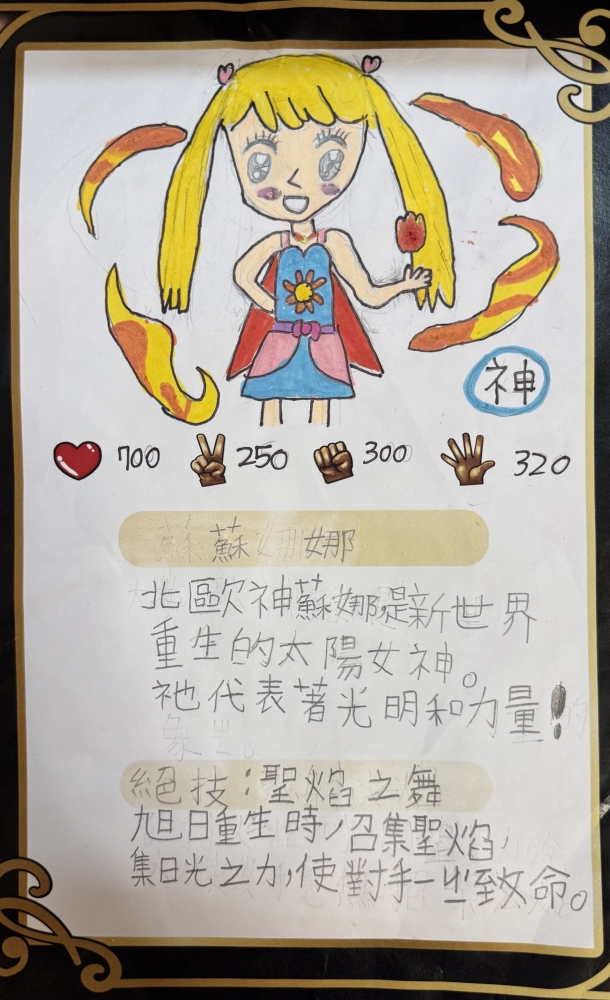 神
700 250 300 320
蘇娜
北歐神蘇娜是新世界
重生的太陽女神。
祂代表著光明和力量!
絕技:聖焰之舞
旭日重生時,召集聖焰,
集日光之力,使對手一出致命。